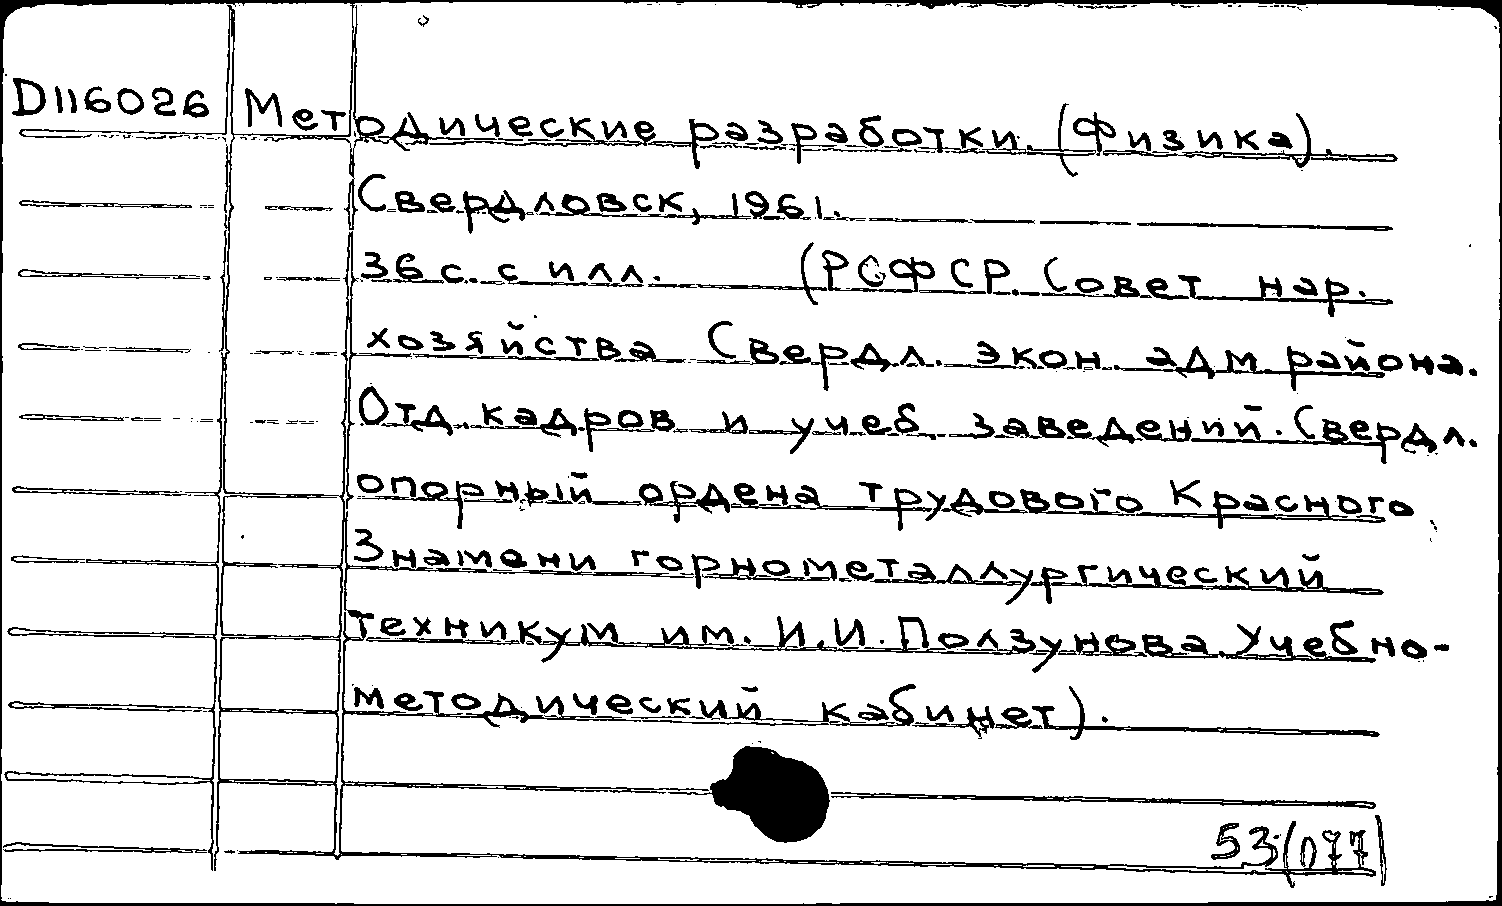 D116026 Методические разработки. (Физика).
Свердловск, 1961.
36 с. с илл. (РСФСР. Совет нар.
хозяйства Свердл. экон. адм. района.
Отд. кадров и учеб. заведений. Свердл.
опорный ордена трудового Красного
Знамени горнометаллургический
техникум им. И.И. Ползунова. Учебно-
методический кабинет).
53(077)